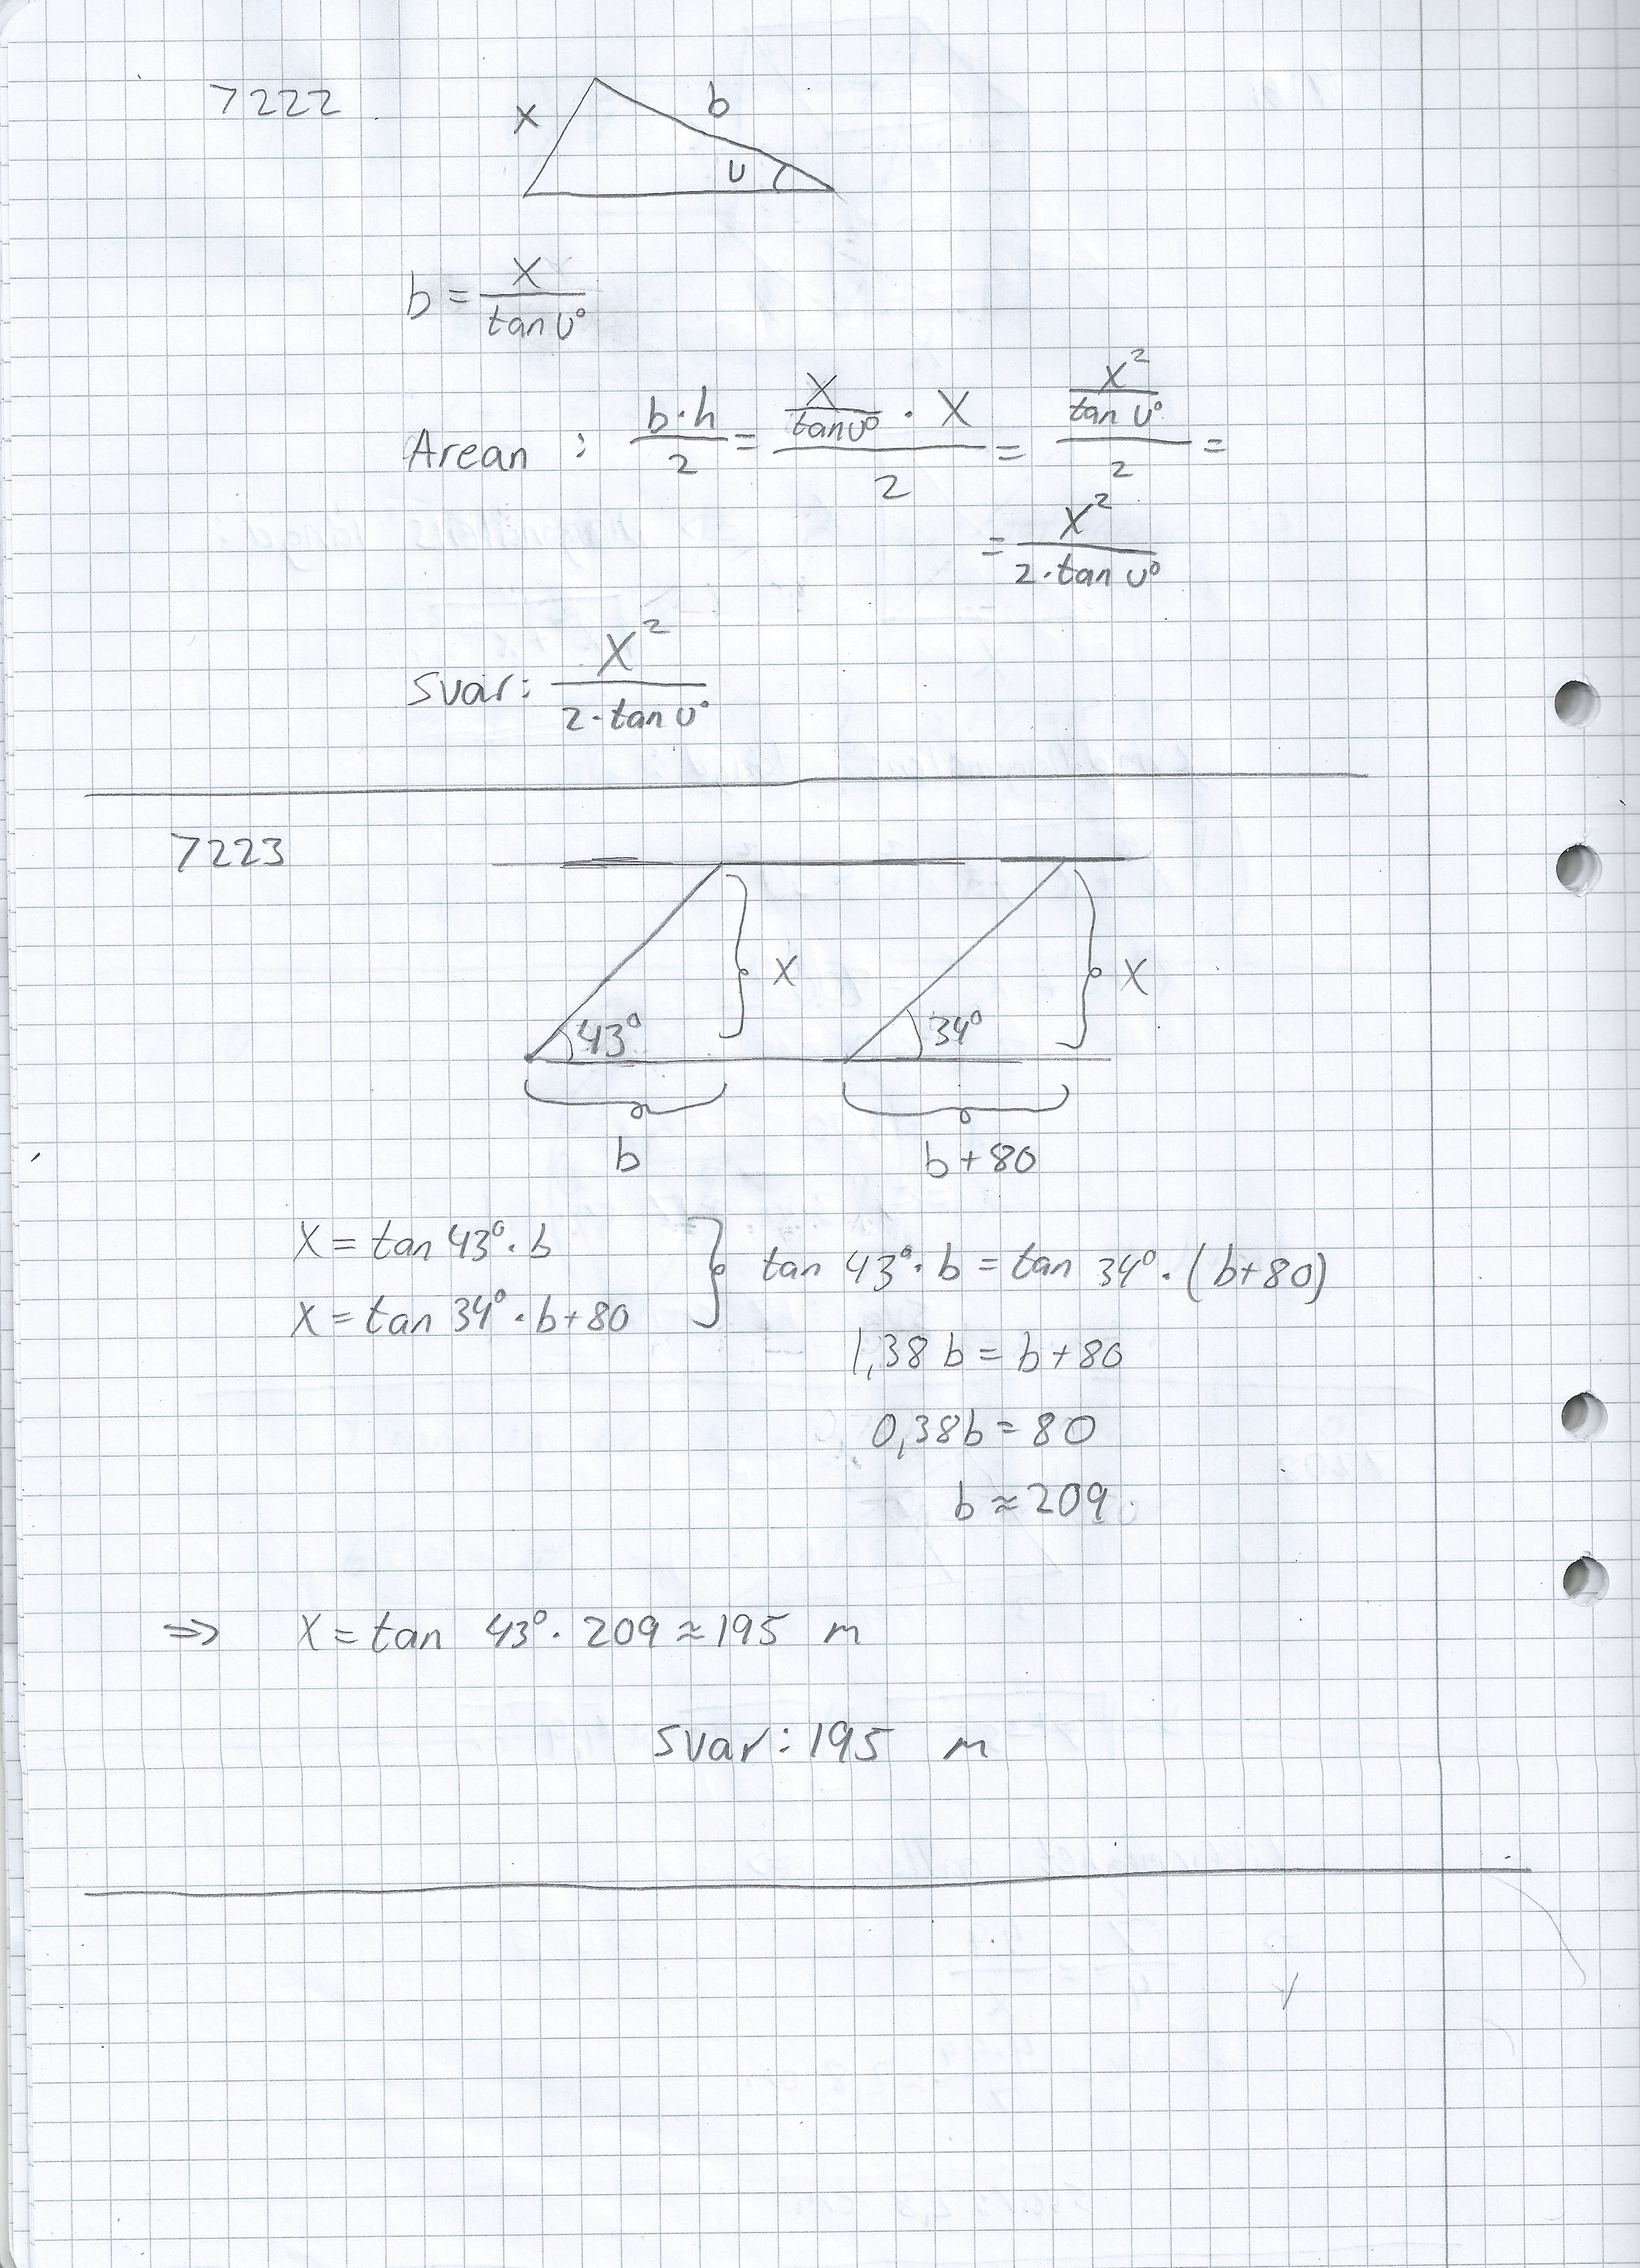 7222
x b
u
b = x / tan u°
Arean : b·h / 2 = (x / tan u° · x) / 2 = (x² / tan u°) / 2 =
= x² / 2·tan u°
Svar: x² / 2·tan u°
7223
x x
43° 34°
b b+80
x = tan 43°·b
x = tan 34°·b+80
tan 43°·b = tan 34°·(b+80)
1,38 b = b+80
0,38b = 80
b ≈ 209
⇒ x = tan 43°·209 ≈ 195 m
Svar: 195 m